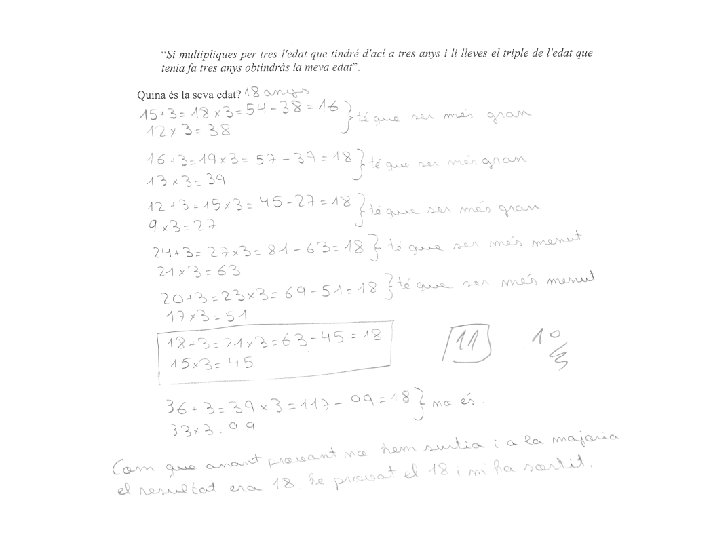 “Si multipliques per tres l'edat que tindré d'ací a tres anys i li lleves el triple de l'edat que
tenia fa tres anys obtindràs la meva edat”.
Quina és la seva edat? 18 anys
15+3=18×3=54-38=16 } té que ser més gran
12×3=38
16+3=19×3=57-39=18 } té que ser més gran
13×3=39
12+3=15×3=45-27=18 } té que ser més gran
9×3=27
24+3=27×3=81-63=18 } té que ser més menut
21×3=63
20+3=23×3=69-51=18 } té que ser més menut
17×3=51
18+3=21×3=63-45=18
15×3=45
11
10
36+3=39×3=117-99=18 } no és.
33×3=99
Com que anant provant no hem surtia i a la majaria
el resultat era 18 he provat el 18 i m ha sortit.